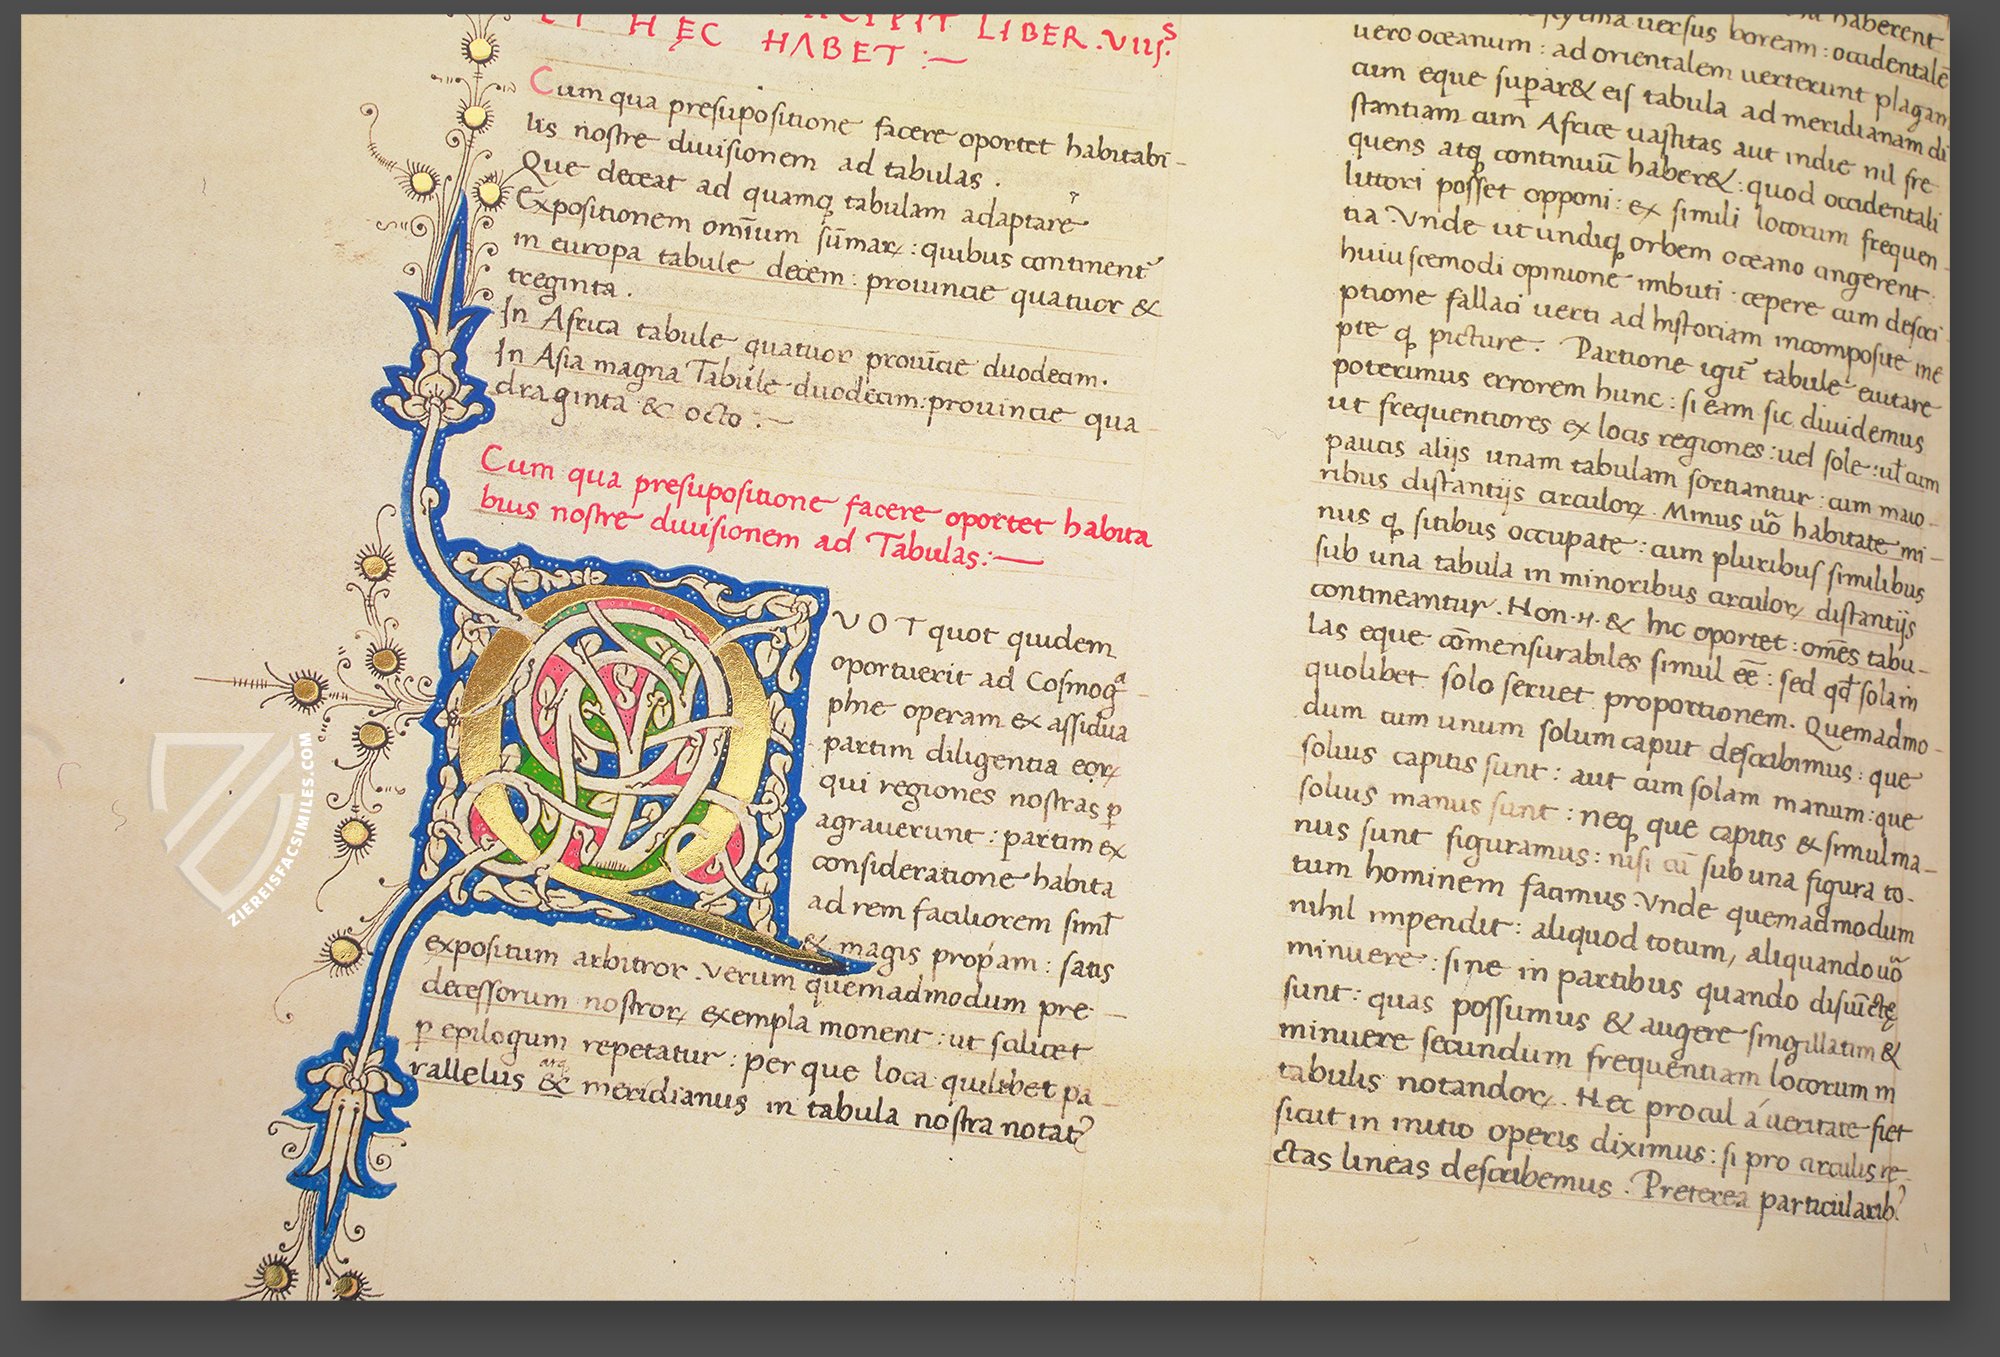 INCIPIT LIBER .VIII.S
ET HĘC HABET :~
Cum qua presupositione facere oportet habitabi-
lis nostre diuisionem ad tabulas .
Que deceat ad quamq tabulam adaptare
Expositionem omiũm sũmar : quibus continent
in europa tabule decem : prouincie quatuor &
treginta .
In Africa tabule quatuor prouicie duodecim .
In Asia magna Tabule duodecim . prouincie qua
draginta & octo :~
Cum qua presupositione facere oportet habita
bius nostre diuisionem ad Tabulas :—
VOT quot quidem
oportuerit ad Cosmogª
phie operam ex assidua
partim diligentia eor
qui regiones nostras p
agrauerunt : partim ex
consideratione habita
ad rem faciliorem siml
& magis propam : satis
expositum arbitror . Verum quemadmodum pre-
decessorum nostror exempla monent : ut scilicet
p epilogum repetatur : per que loca quilibet pa
rallelus & atq meridianus in tabula nostra notat
haberent
uersus boream : occidentalē
uero oceanum : ad orientalem uerterunt plagam
cum eque supar& eis tabula ad meridianam di
stantiam cum Africe uastitas aut indie nil fre
quens atq continuũ haber& : quod occidentali
littori posset opponi : ex simili locorum frequen-
tia . Vnde ut undiq orbem oceano cingerent :
huiuscemodi opinione imbuti : cepere cum descri-
ptione fallaci uerti ad historiam incomposite ine
pte q picture . Partione igit tabule euitare
poterimus errorem hunc : si eam sic diuidemus
ut frequentiores ex locis regiones : uel sole : ul cum
paucis alijs unam tabulam sortiantur : cum maio-
ribus distantijs circulor . Minus uõ habitate mi-
nus q sitibus occupate : cum pluribus similibus
sub una tabula in minoribus circulor distantijs
contineantur . Non .n. & hic oportet : omēs tabu-
las eque cõmensurabiles simul eē : sed qd solam
quolibet solo seruet proportionem . Quemadmo-
dum cum unum solum caput describimus : que
solius capitis sunt : aut cum solam manum : que
solius manus sunt : neq que capitis & simul ma-
nus sunt figuramus : nisi cũ sub una figura to-
tum hominem facimus . Vnde quemadmodum
nihil impendit : aliquod totum, aliquando uõ
minuere : sine in partibus quando disiũctę
sunt : quas possumus & augere singillatim &
minuere secundum frequentiam locorum in
tabulis notandor . Hec procul á ueritate fiet
sicut in initio operis diximus : si pro circulis re-
ctas lineas describemus . Preterea particularib
ZIEREISFACSIMILES.COM